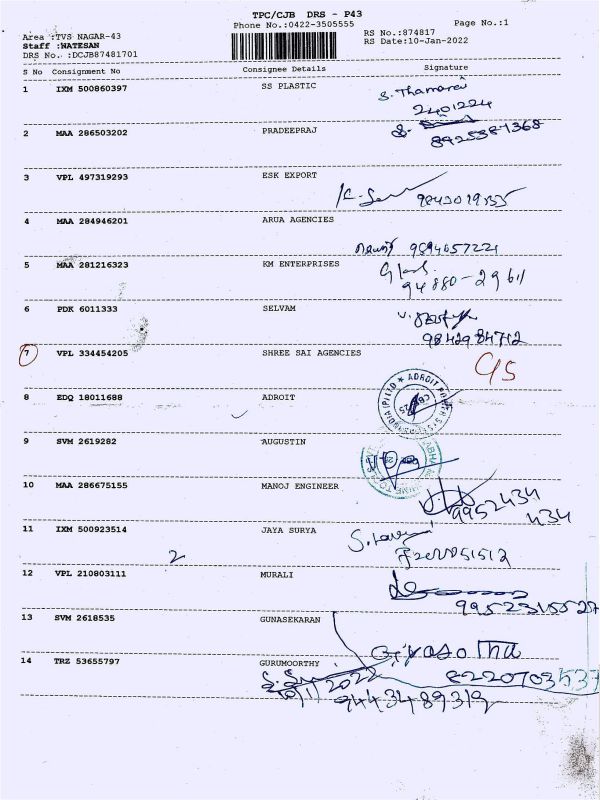 TPC/CJB DRS - P43
Phone No.:0422-3505555
Page No.:1
Area :TVS NAGAR-43
Staff :WATESAN
DRS No. :DCJB87481701
RS No.:874817
RS Date:10-Jan-2022
S No Consignment No Consignee Details Signature
1 IXM 500860397 SS PLASTIC S. Thamarai
2401224
2 MAA 286503202 PRADEEPRAJ
8925387368
3 VPL 497319293 ESK EXPORT
4 MAA 284946201 ARUA AGENCIES
9894657221
5 MAA 281216323 KM ENTERPRISES
94880-29611
6 PDK 6011333 SELVAM
9842984712
7 VPL 334454205 SHREE SAI AGENCIES
8 EDQ 18011688 ADROIT
ADROIT
9 SVM 2619282 AUGUSTIN
10 MAA 286675155 MANOJ ENGINEER
9952434
434
11 IXM 500923514 JAYA SURYA
2
12 VPL 210803111 MURALI
13 SVM 2618535 GUNASEKARAN
14 TRZ 53655797 GURUMOORTHY
8220703537
9443489319